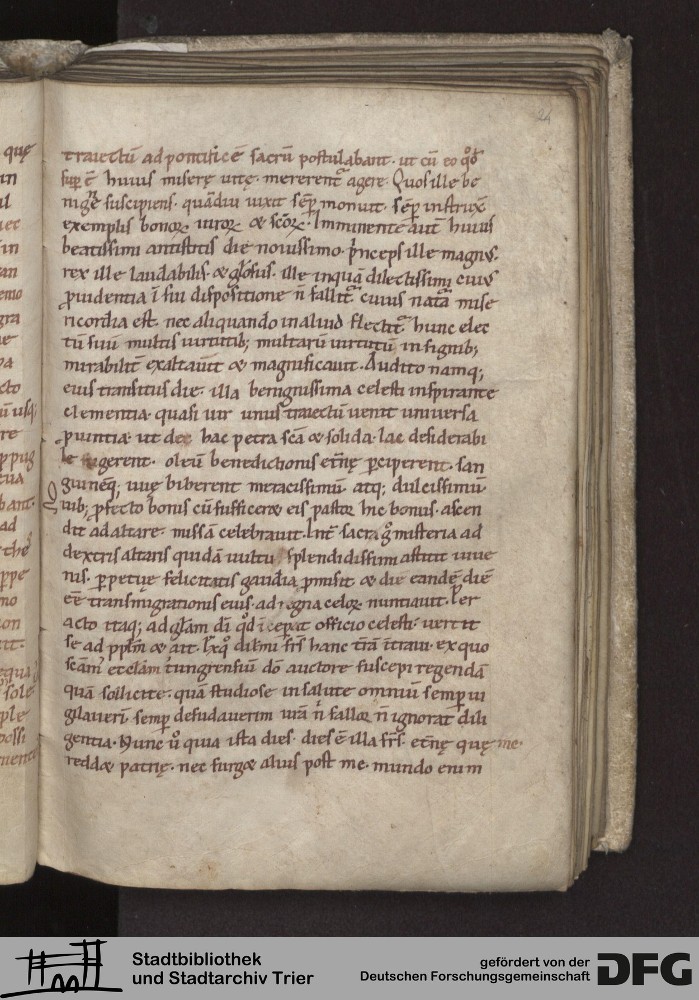 24
traiectū ad pontificē sacrū postulabant · ut cū eo qͦd
suꝑ ē huius miserę uitę · mererent᷑ agere · Quos ille be
nigne suscipiens · quādiu uixit sēꝑ monuit · sēꝑ instruxͭ
exemplis bonoꝝ uiroꝝ & scōꝝ · Imminente aut̄ huius
beatissimi antistitis die nouissimo · pͥnceps ille magnꝰ ·
rex ille laudabilis · & gl̄osus · ille inquā dilectissimꝰ cuiꝰ
ꝓuidentia ī sui dispositione n̄ fallit᷑ · cuius natͣa mise
ricordia est · nec aliquando in aliud flectit᷑ · hunc elec
tū suū multis uirtutib; multarū uirtutū insignib;
mirabilit̄ exaltauit & magnificauit · Audito namq;
eius transitus die · illa benignissima celesti inspirante
clementia · quasi uir unus traiectū uenit uniuersa
ꝓuintia · ut de hac petra scā & solida · lac desiderabi
le sugerent · oleū benedictionis et̄nę ꝑciperent · san
guineq; uuę biberent meracissimū · atq; dulcissimū ·
uib; ꝓfecto bonis cū sufficere eis pastoꝝ hic bonus · ascen
dit ad altare · missā celebrauit · Int̄ sacra gͦ misteria ad
dextris altaris quidā uultu splendidissim astitit iuue
nis · ꝑpetuę felicitatis gaudia ꝓmisit · & die eandē diē
eē transmigrationis eius · ad regna celoꝝ nuntiauit · Per
acto itaq; ad gl̄am dī qͦd īceperat officio celesti · uertit
se ad ppl̄m & ait · frs̄ hanc t̄rā ītraui · ex quo
scām etclām tungrensiū dō auctore suscepi regendā
quā sollicite · quā studiose in salute omniū semꝑ ui
gilauerī · semꝑ desudauerim urā n̄ fallor n̄ ignorat dili
gentia · Nunc u̾ quia ista dies · dies ē illa frs̄ · et̄nę quę me ·
reddat patrię · nec surget alius post me · mundo enim
quę
in
ul
iec
in
an
emo
gra
ne
pa
cto
ū usq;
re
ꝑpug
cua
bant ·
ad
che
ppe
mo
ion
equa
sole
ple
possi
ment
Stadtbibliothek
und Stadtarchiv Trier
gefördert von der
Deutschen Forschungsgemeinschaft
DFG